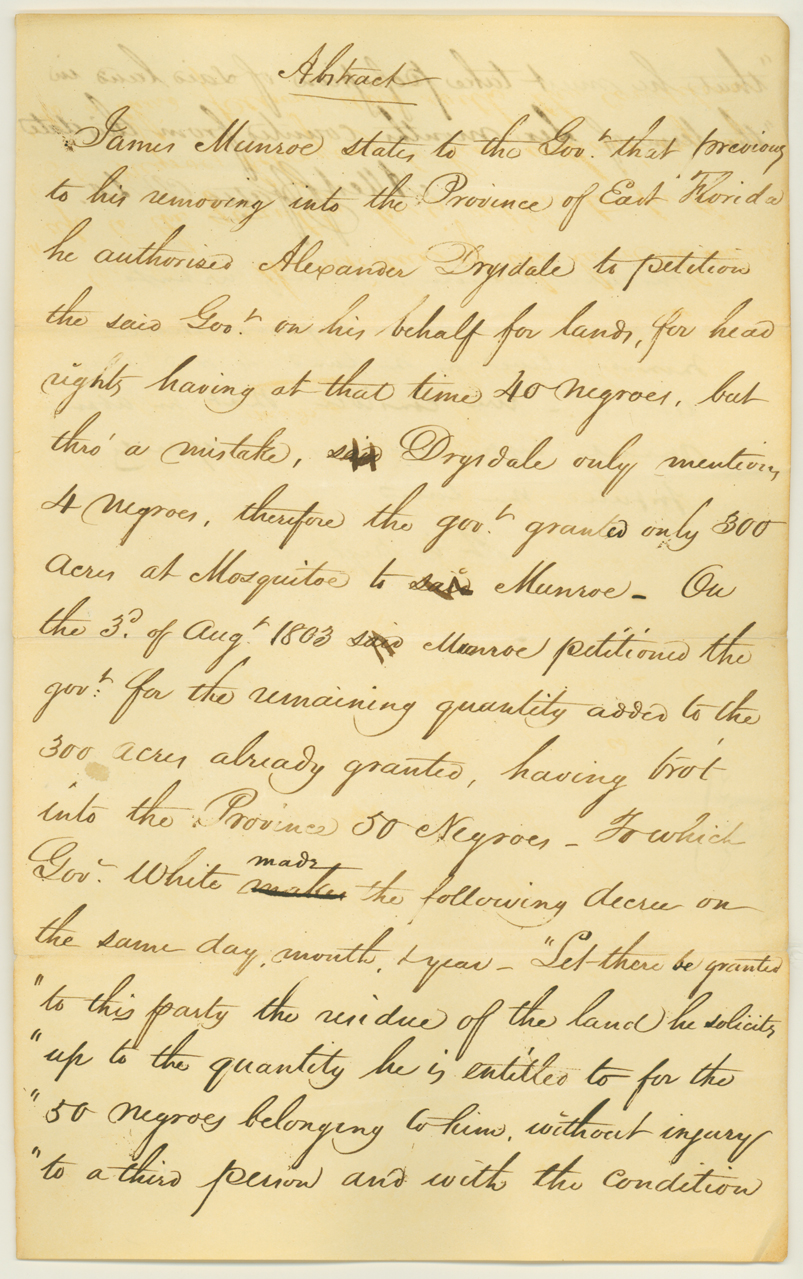 Abstract
James Munroe states to the Gov.r that previous
to his removing into the Province of East Florida
he authorised Alexander Drysdale to petition
the said Gov.r on his behalf for lands, for head
rights having at that time 40 negroes, but
thro' a mistake, said Drysdale only mentions
4 negroes, therefore the gov.r granted only 300
acres at Mosquitoe to said Munroe – On
the 3d. of Aug.t 1803 said Munroe petitioned the
gov.r for the remaining quantity added to the
300 acres already granted, having bro't
into the Province 50 Negroes – To which
Gov.r White makes made the following decree on
the same day, month, & year – "Let there be granted
"to this party the residue of the land he solicits
"up to the quantity he is entitled to for the
"50 negroes belonging to him, without injury
"to a third person and with the condition